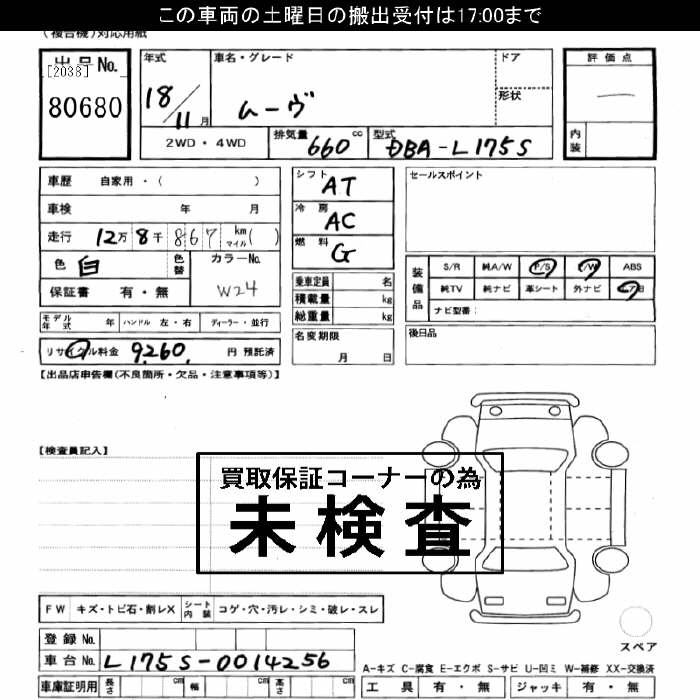 この車両の土曜日の搬出受付は17:00まで
(複合機)対応用紙
出品No.
[2038]
80680
年式 18/11月
車名・グレード
ムーヴ
ドア
形状
2WD・4WD
排気量 660 cc
型式 DBA-L175S
評価点
内装
車歴 自家用・( )
車検 年 月
走行 12万8千867 km マイル( )
色 白 色替
カラーNo. W24
保証書 有・無
モデル年式 年 ハンドル 左・右 ディーラー・並行
リサイクル料金 9,260. 円 預託済
シフト AT
冷房 AC
燃料 G
乗車定員 名
積載量 kg
総重量 kg
名変期限 月 日
セールスポイント
装備品
S/R 純A/W P/S P/W ABS
純TV 純ナビ 革シート 外ナビ
ナビ型番:
後日品
【出品店申告欄(不良箇所・欠品・注意事項等)】
【検査員記入】
買取保証コーナーの為
未検査
FW キズ・トビ石・割レX シート内装 コゲ・穴・汚レ・シミ・破レ・スレ
登録No.
車台No. L175S-0014256
車庫証明用 長さ cm 幅 cm 高さ cm
スペア
A-キズ C-腐食 E-エクボ S-サビ U-凹ミ W-補修 XX-交換済
工具 有・無 ジャッキ 有・無